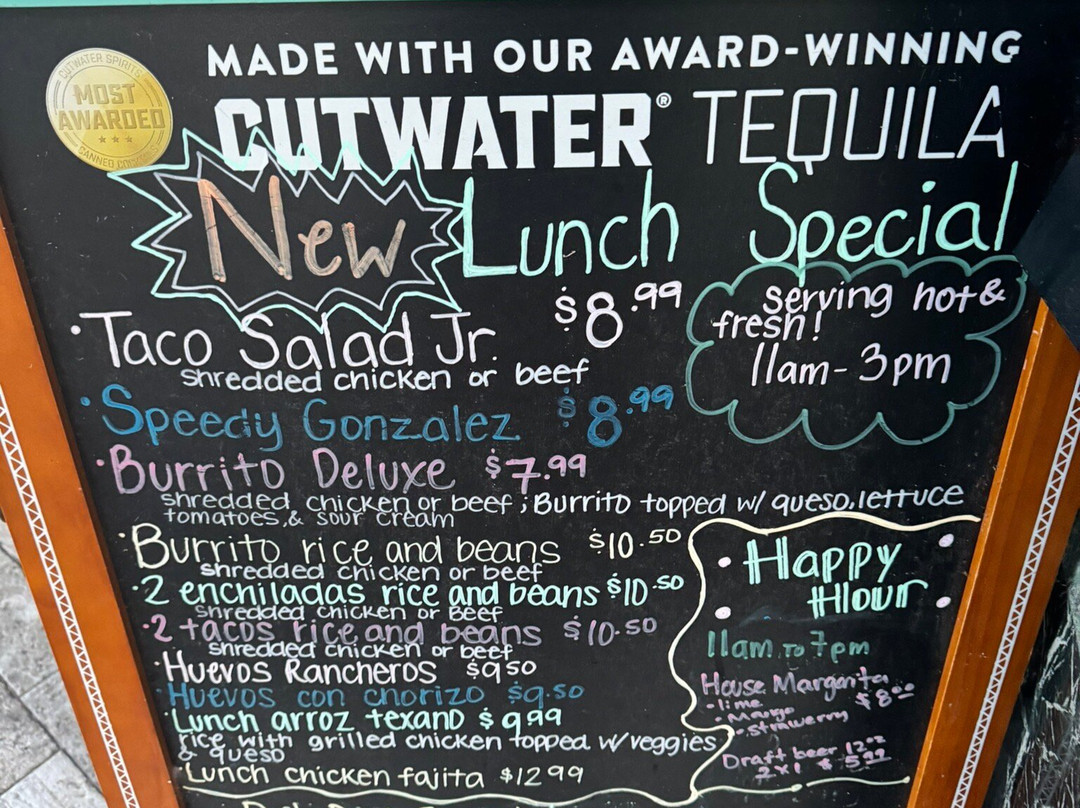 CUTWATER SPIRITS
MOST
AWARDED
CANNED
MADE WITH OUR AWARD-WINNING
CUTWATER® TEQUILA
New Lunch Special
serving hot &
fresh!
11am - 3pm
• Taco Salad Jr. $8.99
shredded chicken or beef
• Speedy Gonzalez $8.99
• Burrito Deluxe $7.99
shredded chicken or beef ; Burrito topped w/ queso, lettuce
tomatoes, & sour cream
• Burrito rice and beans $10.50
shredded chicken or beef
• 2 enchiladas rice and beans $10.50
shredded chicken or Beef
• 2 tacos rice and beans $10.50
shredded chicken or beef
• Huevos Rancheros $9.50
• Huevos con chorizo $9.50
• Lunch arroz texano $9.99
rice with grilled chicken topped w/veggies
& queso
• Lunch chicken fajita $12.99
• Happy
Hour
11am to 7pm
House Margarita
$8.00
• lime
• Mango
• strawerry
Draft beer 12oz
2x1 $5.99